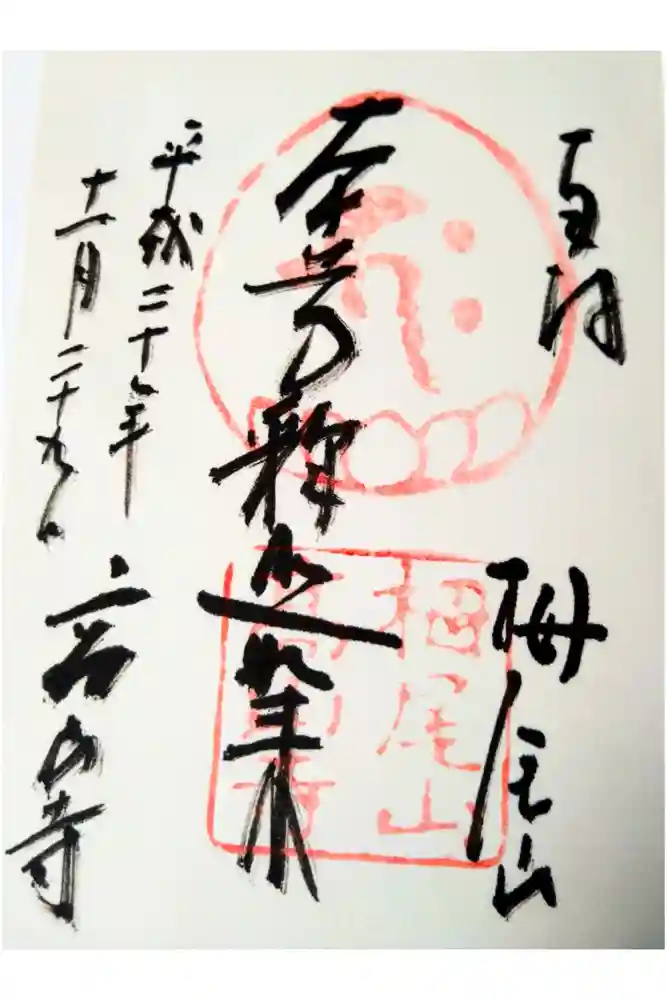 奉拝
栂尾山
南無釋迦如来
平成二十七年
十一月二十九日
高山寺
栂尾山
高山寺